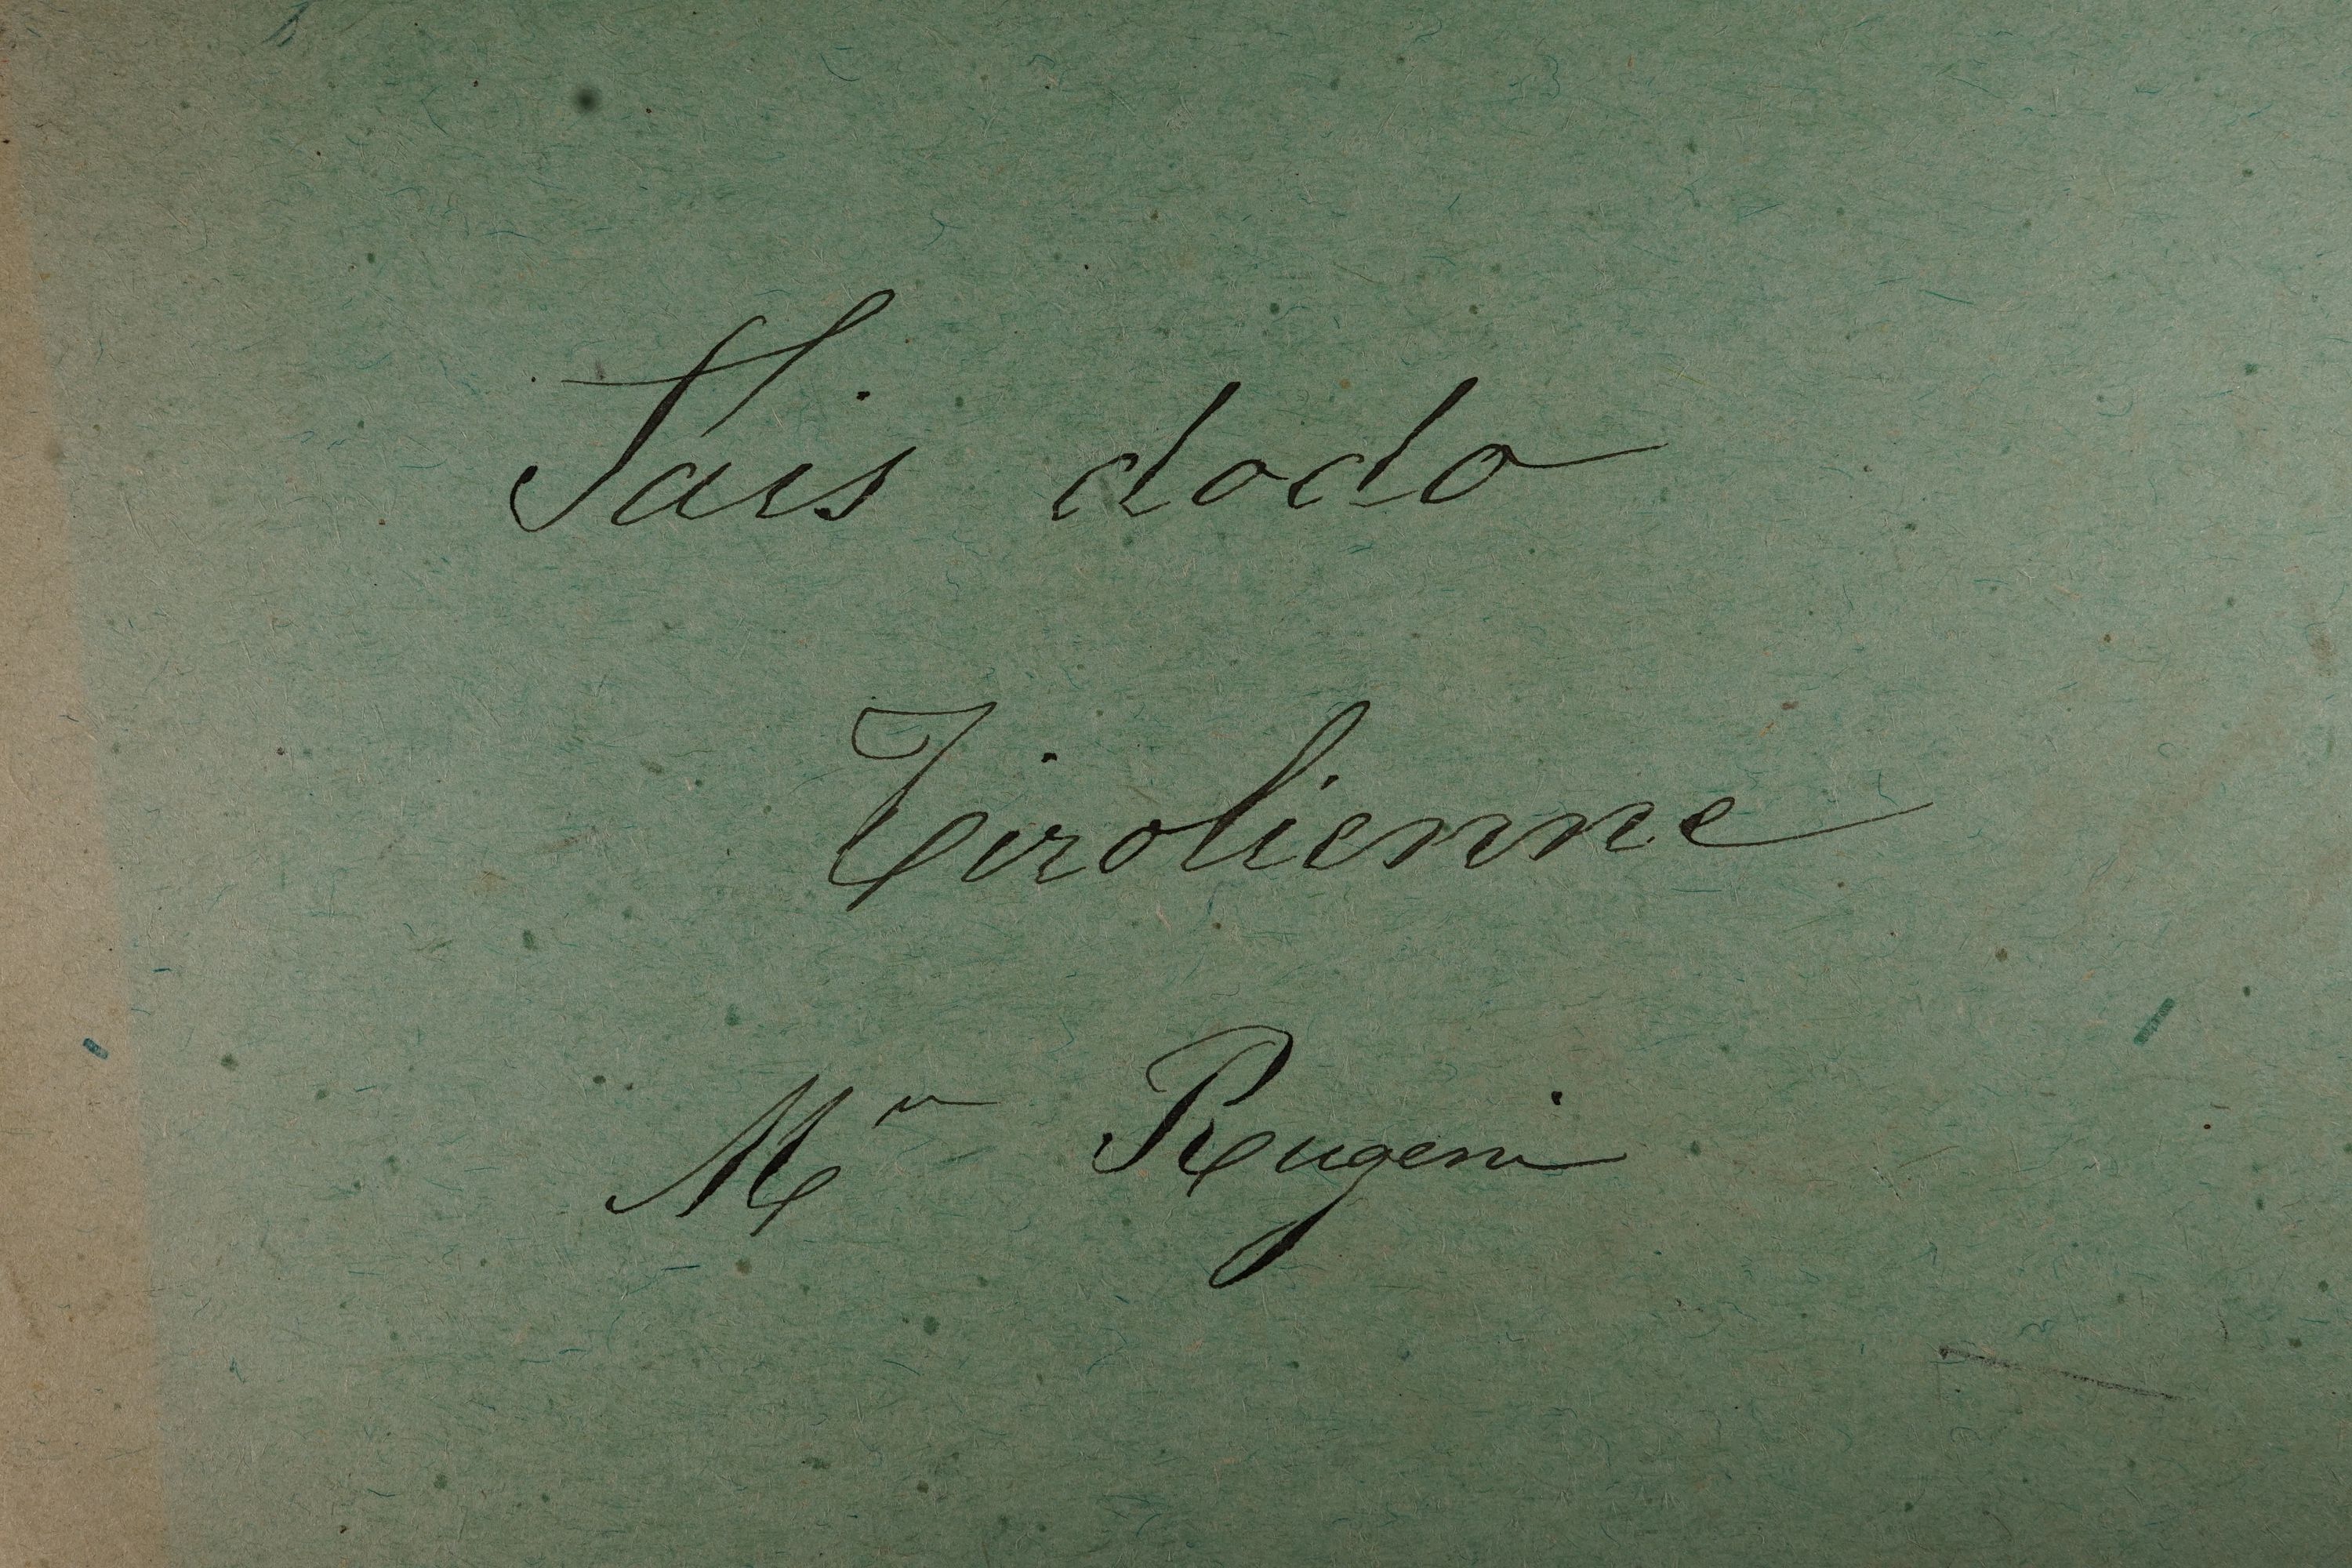 Fais dodo
Tirolienne
Mr Rugeni